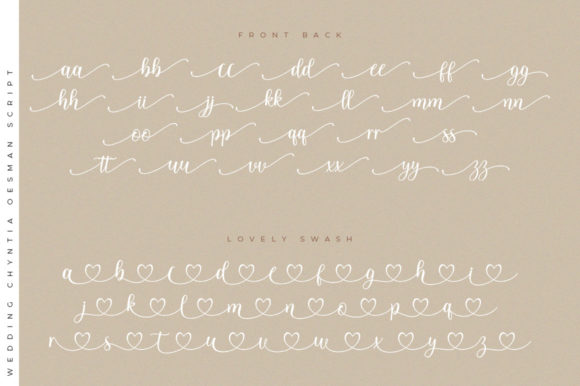 WEDDING CHYNTIA YOESMAN SCRIPT
FRONT BACK
aa bb cc dd ee ff gg
hh ii jj kk ll mm nn
oo pp qq rr ss
tt uu vv xx yy zz
LOVELY SWASH
a b c d e f g h i
j k l m n o p q
r s t u v w x y z